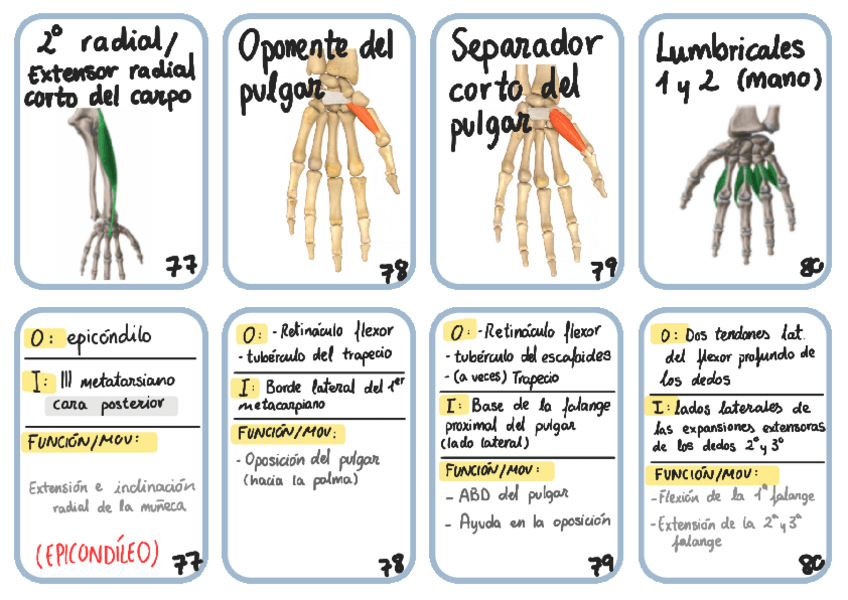 2º radial/
Extensor radial
corto del carpo
77
Oponente del
pulgar
78
Separador
corto del
pulgar
79
Lumbricales
1 y 2 (mano)
80
O: epicóndilo
I: III metatarsiano
cara posterior
FUNCIÓN/MOV:
Extensión e inclinación
radial de la muñeca
(EPICONDÍLEO)
77
O: - Retináculo flexor
- tubérculo del trapecio
I: Borde lateral del 1er
metacarpiano
FUNCIÓN/MOV:
- Oposición del pulgar
(hacia la palma)
78
O: - Retináculo flexor
- tubérculo del escafoides
- (a veces) Trapecio
I: Base de la falange
proximal del pulgar
(lado lateral)
FUNCIÓN/MOV:
- ABD del pulgar
- Ayuda en la oposición
79
O: Dos tendones lat.
del flexor profundo de
los dedos
I: lados laterales de
las expansiones extensoras
de los dedos 2º y 3º
FUNCIÓN/MOV:
- Flexión de la 1ª falange
- Extensión de la 2ª y 3ª
falange
80